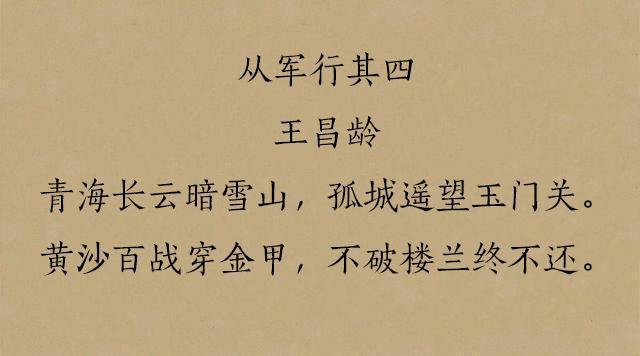 从军行其四
王昌龄
青海长云暗雪山，孤城遥望玉门关。
黄沙百战穿金甲，不破楼兰终不还。